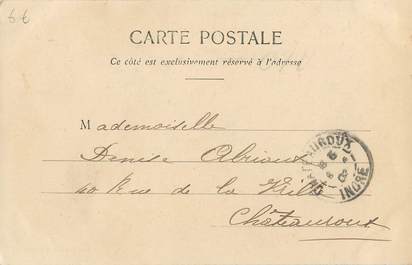 6 €
CARTE POSTALE
Ce côté est exclusivement réservé à l'adresse
Mademoiselle
Denise
40 Rue de la
Châteauroux
CHATEAUROUX
INDRE